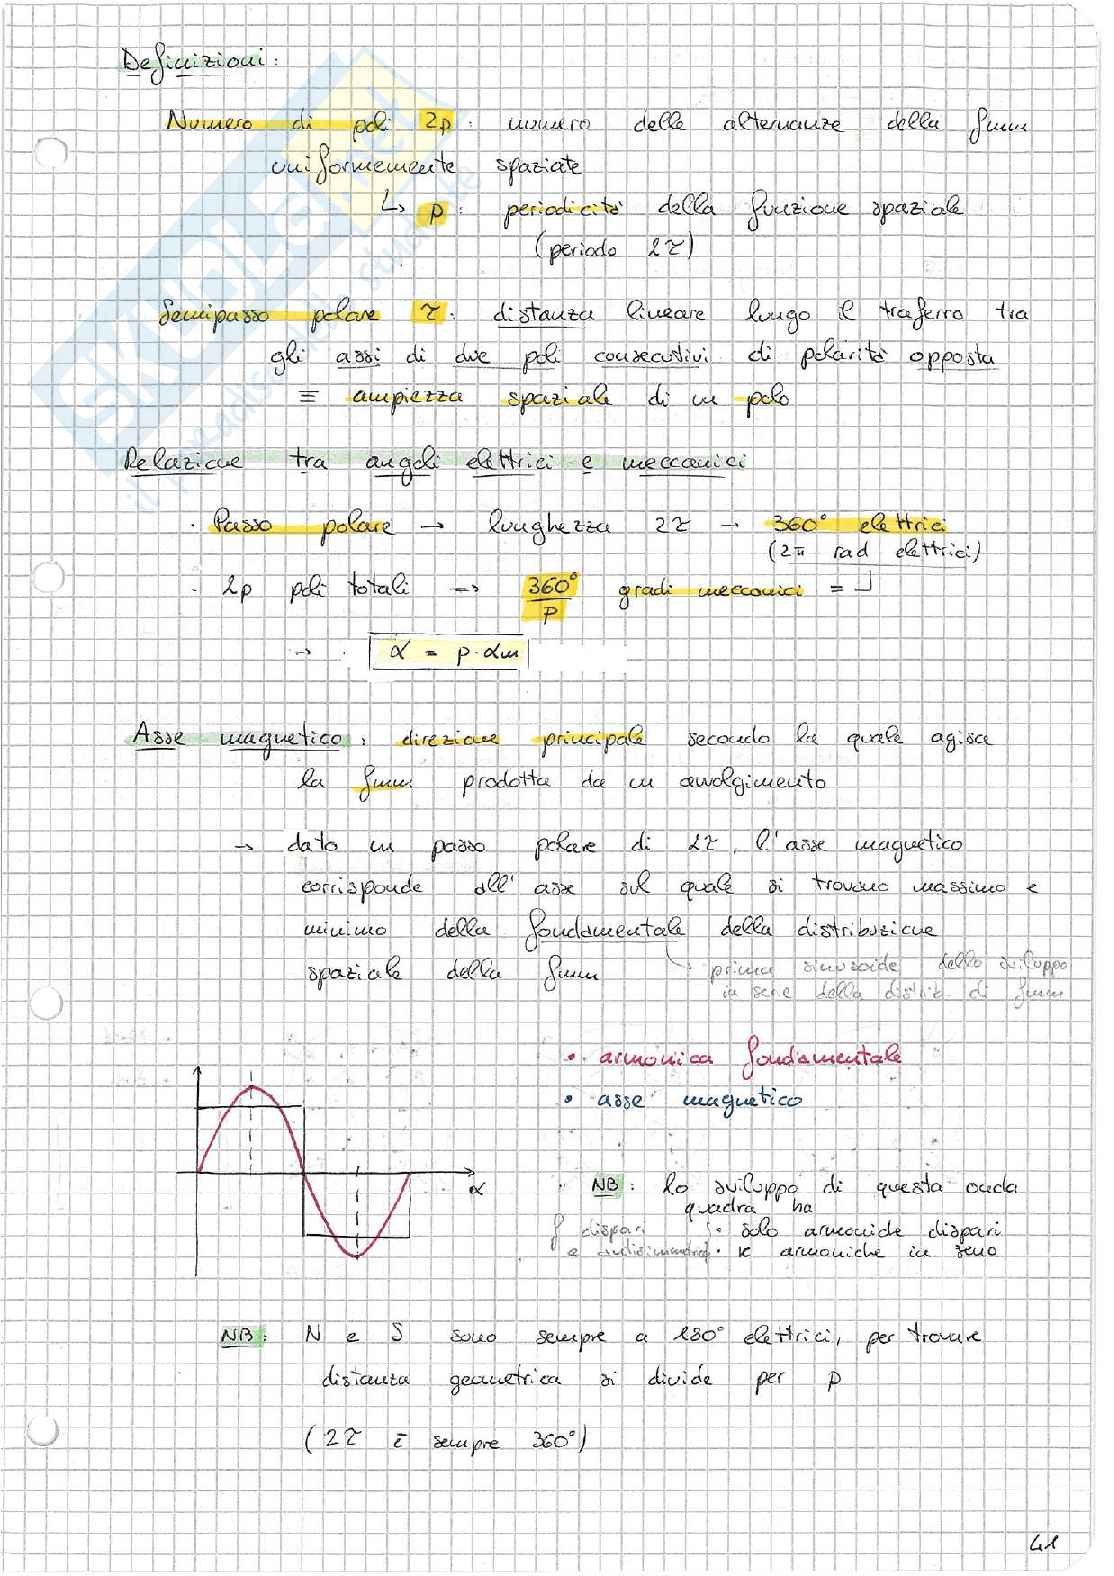 Definizioni:
Numero di poli 2p: numero delle alternanze della fmm
uniformemente spaziate
↳ p: periodicità della funzione spaziale
(periodo 2τ)
Semipasso polare τ: distanza lineare lungo il traferro tra
gli assi di due poli consecutivi di polarità opposta
≡ ampiezza spaziale di un polo
Relazione tra angoli elettrici e meccanici
· Passo polare → lunghezza 2τ → 360° elettrici
(2π rad elettrici)
· 2p poli totali → 360°/p gradi meccanici =
→ · α = p·αm
Asse magnetico: direzione principale secondo la quale agisce
la fmm prodotta da un avvolgimento
→ dato un passo polare di 2τ, l'asse magnetico
corrisponde all'asse sul quale si trovano massimo e
minimo della fondamentale della distribuzione
spaziale della fmm
prima sinusoide dello sviluppo
in serie della distrib. di fmm
• armonica fondamentale
• asse magnetico
α
NB: lo sviluppo di questa onda
quadra ha
f dispari · solo armoniche dispari
e antisimmetrica · k armoniche in seno
NB: N e S sono sempre a 180° elettrici, per trovare
distanza geometrica si divide per p
(2τ è sempre 360°)
41
SKUOLA.net
il paradiso dello studente